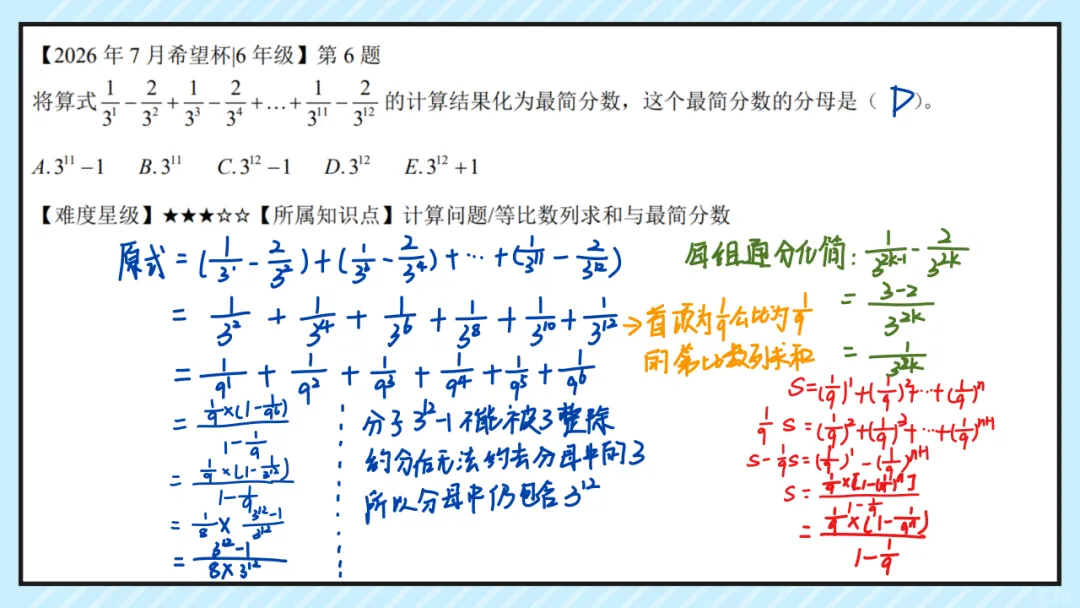 【2026 年 7 月希望杯|6 年级】第 6 题
将算式 1/3^1 − 2/3^2 + 1/3^3 − 2/3^4 + … + 1/3^11 − 2/3^12 的计算结果化为最简分数，这个最简分数的分母是（ D ）。
A.3^11 −1 B.3^11 C.3^12 −1 D.3^12 E.3^12 +1
【难度星级】★★★☆☆【所属知识点】计算问题/等比数列求和与最简分数
原式 = (1/3^1 − 2/3^2) + (1/3^3 − 2/3^4) + ⋯ + (1/3^11 − 2/3^12)
= 1/3^2 + 1/3^4 + 1/3^6 + 1/3^8 + 1/3^10 + 1/3^12
= 1/9^1 + 1/9^2 + 1/9^3 + 1/9^4 + 1/9^5 + 1/9^6
= 1/9 × (1 − 1/9^6) / (1 − 1/9)
= 1/9 × (1 − 1/3^12) / (1 − 1/9)
= 1/8 × (3^12 − 1)/3^12
= (3^12 − 1)/(8 × 3^12)
→ 首项为 1/9 公比为 1/9
的等比数列求和
分子 3^12 −1 不能被 3 整除
约分后无法约去分母中的 3
所以分母中仍包含 3^12
每组通分化简: 1/3^(2k−1) − 2/3^(2k)
= (3−2)/3^(2k)
= 1/3^(2k)
S = (1/9)^1 + (1/9)^2 + ⋯ + (1/9)^n
1/9 S = (1/9)^2 + (1/9)^3 + ⋯ + (1/9)^(n+1)
S − 1/9 S = (1/9)^1 − (1/9)^(n+1)
S = 1/9 × [1 − (1/9)^n] / (1 − 1/9)
= 1/9 × (1 − 1/9^n) / (1 − 1/9)